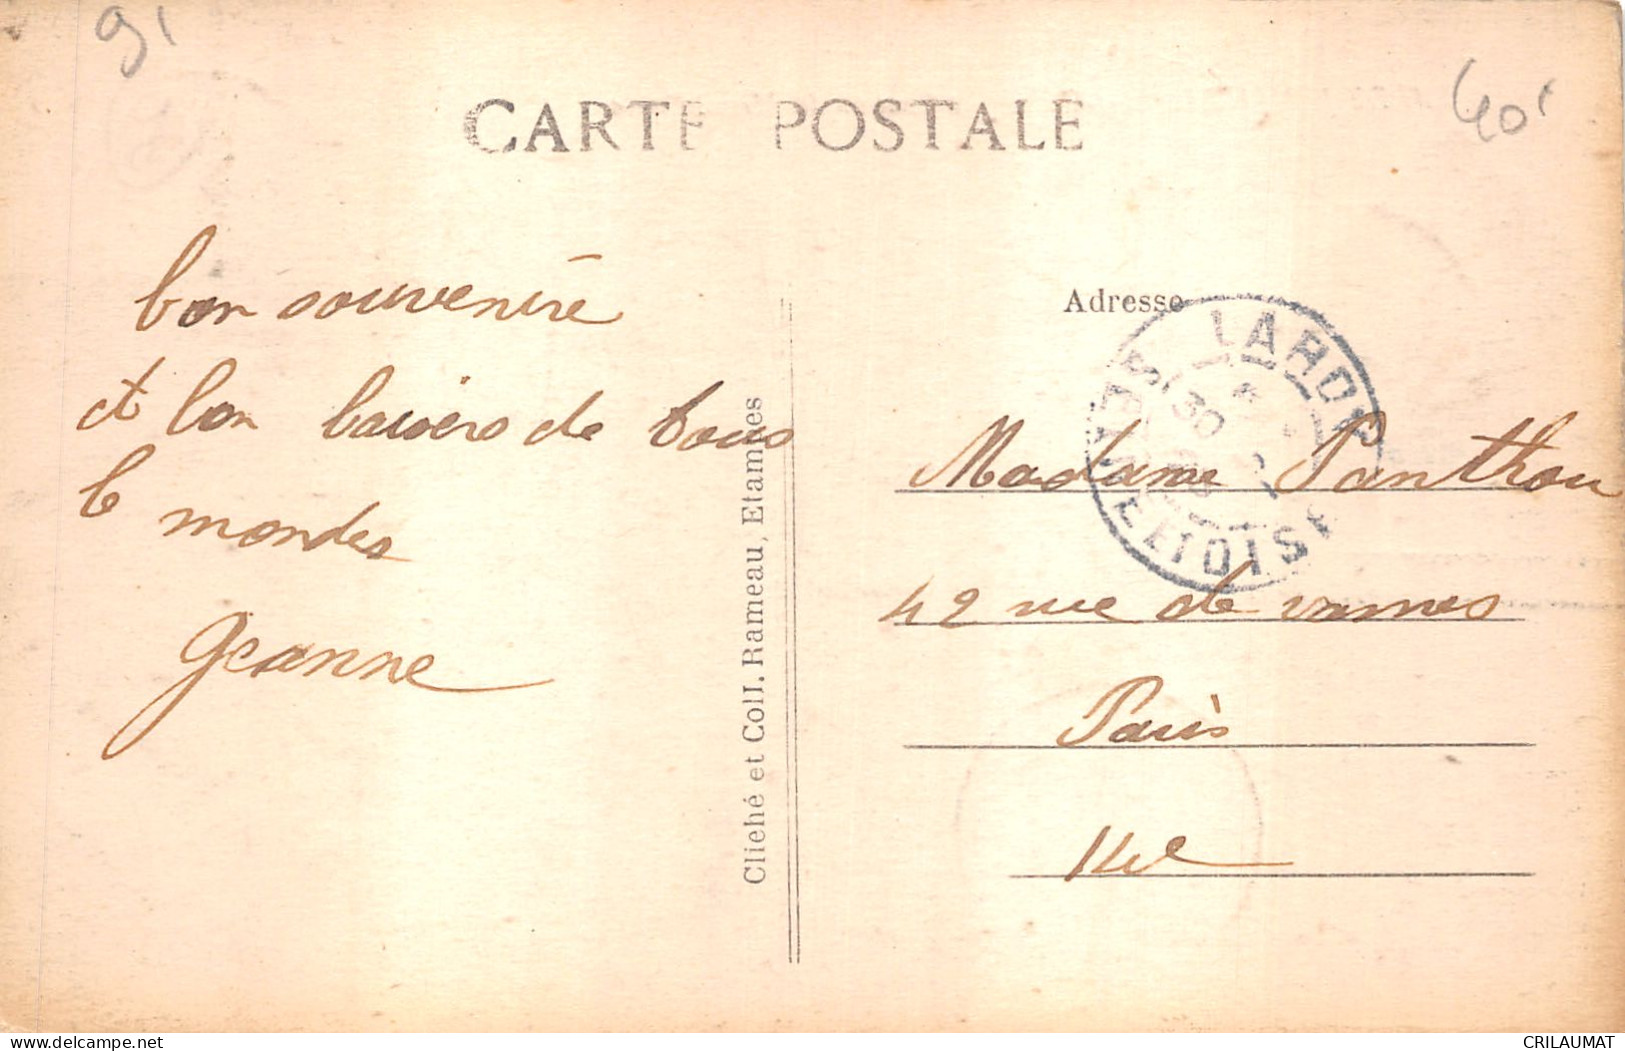 91
40'
CARTE POSTALE
bon souvenire
et bon baisers de tous
le mondes
Jeanne
Cliché et Coll. Rameau, Etampes
Adresse
LARDY
SEINE ET OISE
30
Madame Panthou
42 rue de
Paris
14e
www.delcampe.net
CRILAUMAT